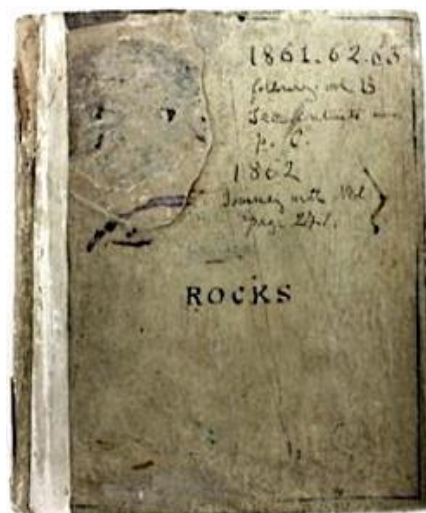 1861.62.63
following vol B
p. C.
1862
Journey with
page 241.
ROCKS